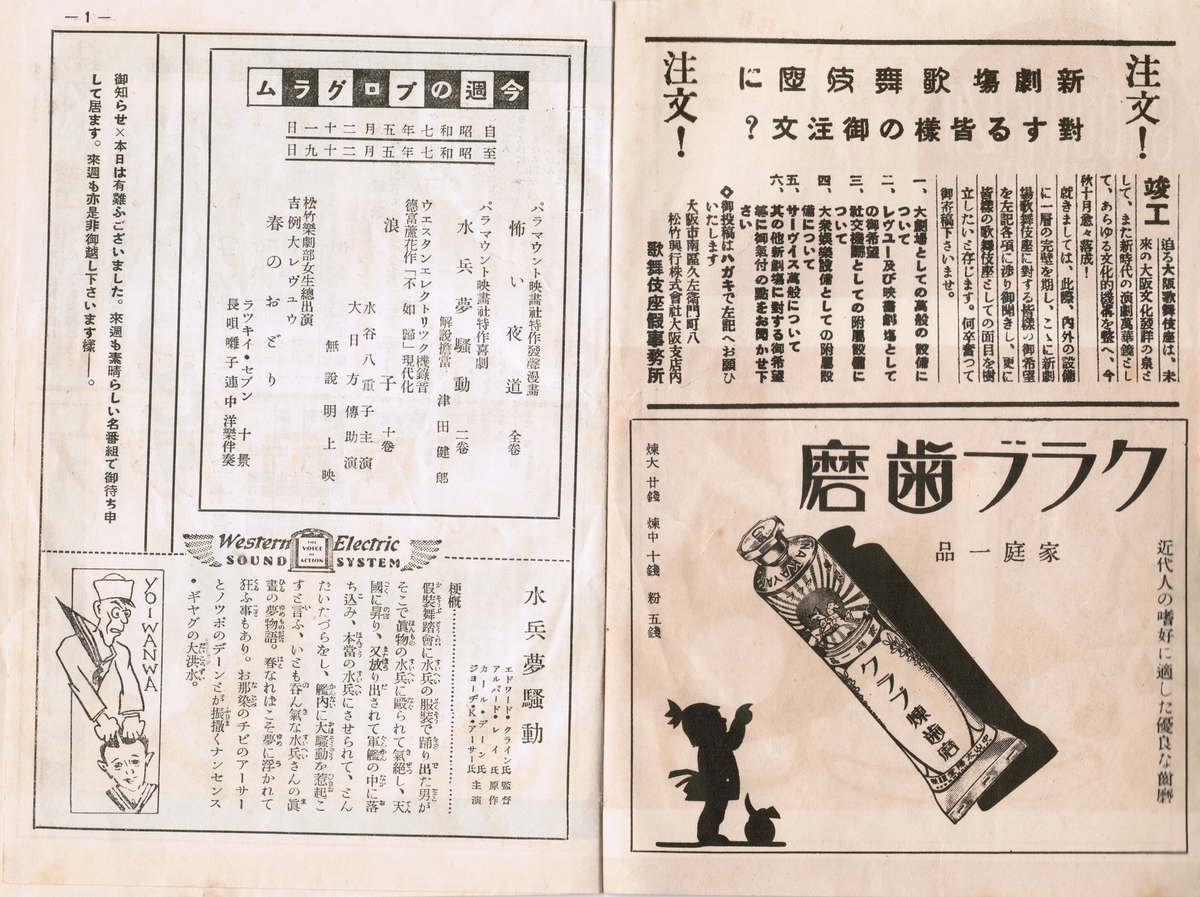 注文！
新劇場歌舞伎座に
對する皆樣の御注文？
注文！
竣工 迫る大阪歌舞伎座は、未
來の大阪文化發祥の泉と
して、また新時代の演劇萬華鏡とし
て、あらゆる文化的を整へ、今
秋十月愈々落成！
就きましては、此際、内外の設備
に一層の完璧を期し、こゝに新劇
場歌舞伎座に對する皆樣の御希望
を左記各項に渉り御聞きし、更に
皆樣の歌舞伎座としての面目を樹
立したいと存じます。何卒奮つて
御寄稿下さいませ。
一、大劇場としての萬般の設備に
ついて
二、レヴュー及び映畫劇場として
の御希望
三、社交機關としての附屬設備に
ついて
四、大衆娯樂設備としての附屬設
備について
五、サーヴイス萬般について
六、其の他新劇場に對する御希望
等に御氣付の點をお聞かせ下
さい
◇御投稿はハガキで左記へお願ひ
いたします
大阪市南區久左衞門町八
松竹興行株式會社大阪支店内
歌舞伎座假事務所
クラブ歯磨
家庭一品
近代人の嗜好に適した優良な齒磨
クラブ煉齒磨
煉大 廿錢 煉中 十錢 粉 五錢
— 1 —
今週のプログラム
自昭和七年五月二十一日
至昭和七年五月二十九日
パラマウント映畫社特作發聲漫畫
怖い夜道 全卷
パラマウント映畫社特作喜劇
水兵夢騷動 二卷
解說擔當 津田健郎
ウエスタンエレクトリツク機錄音
德富蘆花作「不如歸」現代化
浪子 十卷
水谷八重子主演
大日方傳助演
無說明上映
松竹樂劇部女生總出演
吉例大レヴュウ
春のおどり
ラツキイ・セブン 十景
長唄囃子連中洋樂伴奏
御知らせ×本日は有難ふございました。來週も素晴らしい名番組で御待ち申
して居ます。來週も亦是非御越し下さいます樣——。
Western Electric
SOUND SYSTEM
THE VOICE OF ACTION
水兵夢騷動
エドワード・クライン氏 監督
アルバード・レイ氏 原作
カール・デーン氏
ジヨーヂ・K・アーサー氏 主演
梗概…………
假裝舞踏會に水兵の服裝で踊り出た男が
そこで眞物の水兵に毆られて氣絕し、天
國に昇り、又放り出されて軍艦の中に落
ち込み、本當の水兵にさせられて、とん
だいたづらをし、艦内に大騷動を惹起こ
すと言ふ、いとも呑ん氣な水兵さんの眞
晝の夢物語。春なればこそ夢に浮かれて
狂ふ事もあり。お那染のチビのアーサー
とノツポのデーンとが振撒くナンセンス
・ギヤグの大洪水。
YOIWANWA